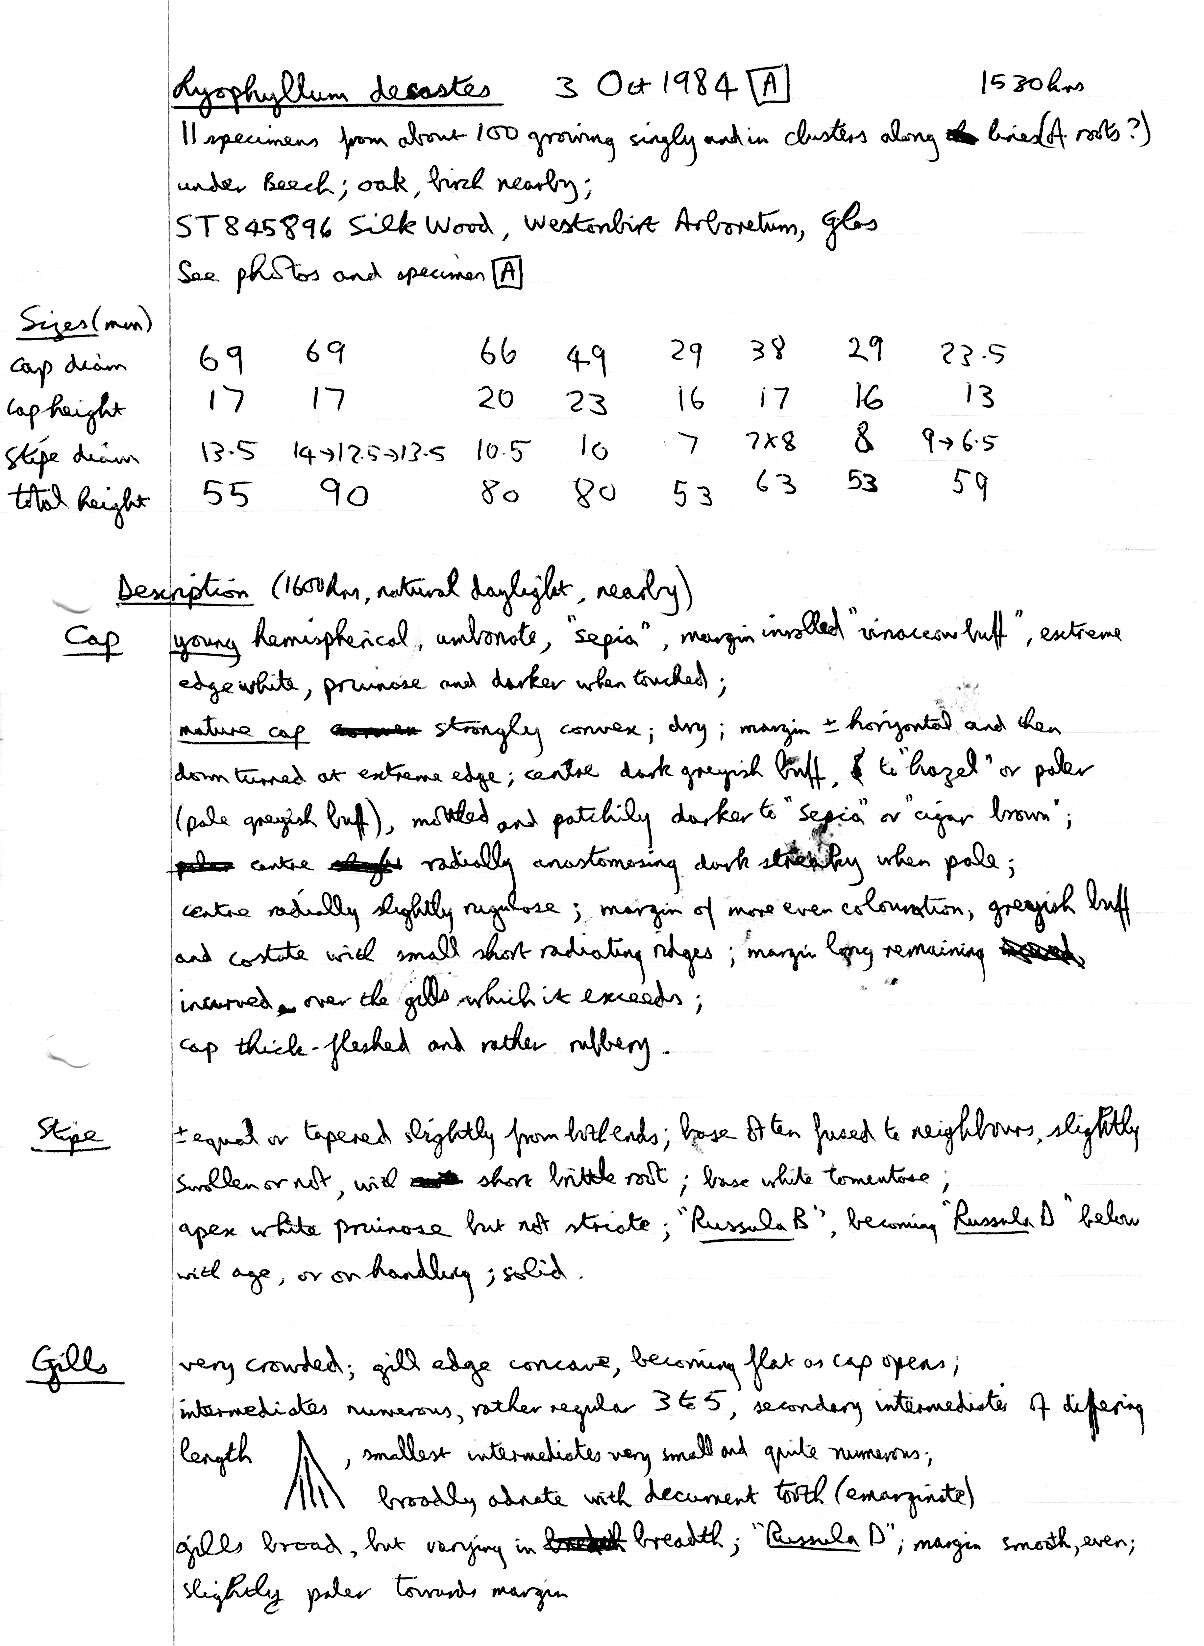 Lyophyllum decastes 3 Oct 1984 A 1530hrs
11 specimens from about 100 growing singly and in clusters along lines (of roots?)
under Beech; oak, birch nearby;
ST845896 Silk Wood, Westonbirt Arboretum, Glos
See photos and specimen A
Sizes (mm)
Cap diam 69 69 66 49 29 38 29 23.5
Cap height 17 17 20 23 16 17 16 13
Stipe diam 13.5 14→12.5→13.5 10.5 10 7 7x8 8 9→6.5
total height 55 90 80 80 53 63 53 59
Description (1600hrs, natural daylight, nearby)
Cap young hemispherical, umbonate, "sepia", margin inrolled "vinaceous buff", extreme
edge white, pruinose and darker when touched;
mature cap strongly convex; dry; margin ± horizontal and then
down turned at extreme edge; centre dark greyish buff, to "hazel" or paler
(pale greyish buff), mottled and patchily darker to "sepia" or "cigar brown";
centre radially anastomosing dark streaky when pale;
centre radially slightly rugulose; margin of more even colouration, greyish buff
and costate with small short radiating ridges; margin long remaining
incurved over the gills which it exceeds;
cap thick-fleshed and rather rubbery.
Stipe ± equal or tapered slightly from both ends; base often fused to neighbours, slightly
swollen or not, with short brittle root; base white tomentose;
apex white pruinose but not striate; "Russula B", becoming "Russula D" below
with age, or on handling; solid.
Gills very crowded; gill edge concave, becoming flat as cap opens;
intermediates numerous, rather regular 3 to 5, secondary intermediates of differing
length , smallest intermediates very small and quite numerous;
broadly adnate with decurrent tooth (emarginate)
gills broad, but varying in breadth; "Russula D"; margin smooth, even;
slightly paler towards margin